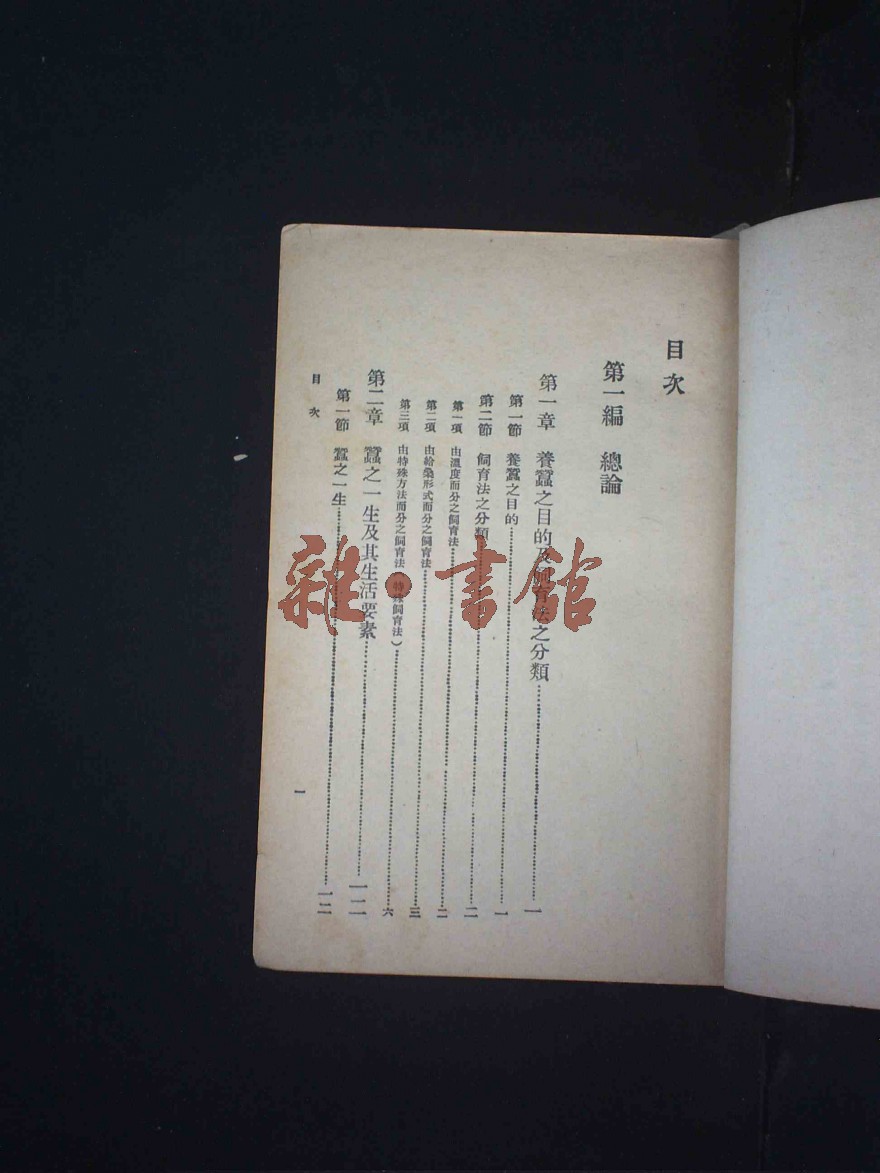 目次
第一編　總論
第一章　養蠶之目的及飼育法之分類……一
第一節　養蠶之目的……一
第二節　飼育法之分類……二
第一項　由溫度而分之飼育法……二
第二項　由給桑形式而分之飼育法……三
第三項　由特殊方法而分之飼育法（特殊飼育法）……六
第二章　蠶之一生及其生活要素……一二
第一節　蠶之一生……一二
目次
一
雜·書館